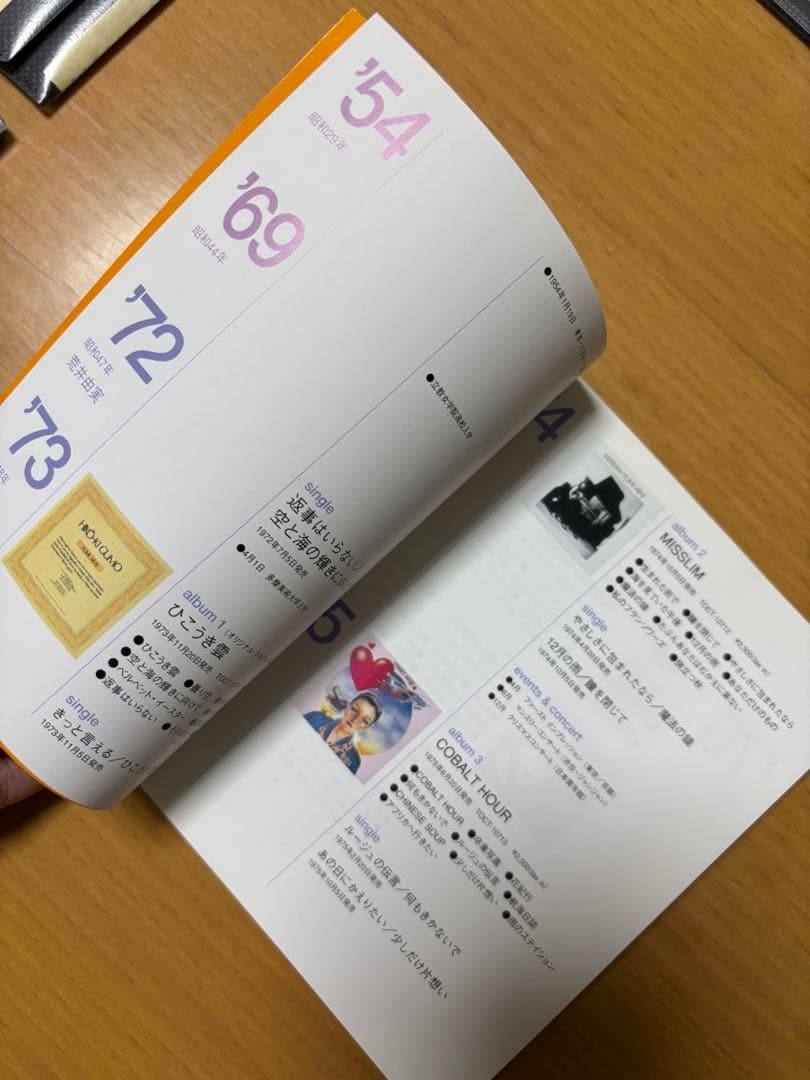 '54
昭和29年
●1954年1月19日 東京・
'69
昭和44年
●立教女学院高校入学
'72
昭和47年
荒井由実
single
返事はいらない
空と海の輝きに向
1972年7月5日発売
●4月1日 多摩美術大学入学
'73
8年
HIKO-KI GUMO
album 1
ひこうき雲
1973年11月20日発売 TOCT-
●ひこうき雲 ●曇り空
●空と海の輝きに向けて
●ベルベット・イースター
●返事はいらない
single
きっと言える/ひこう
1973年11月5日発売
4
album 2
MISSLIM
1974年10月5日発売 TOCT-10712 ¥2,500(tax in)
●生まれた街で ●瞳を閉じて ●やさしさに包まれたなら
●海を見ていた午後 ●12月の雨 ●あなただけのもの
●魔法の鏡 ●たぶんあなたはむかえに来ない
●私のフランソワーズ ●旅立つ秋
single
やさしさに包まれたなら/魔法の鏡
1974年4月20日発売
12月の雨/瞳を閉じて
1974年10月5日発売
events & concert
5
album 3
COBALT HOUR
1975年6月20日発売 TOCT-10713 ¥2,500(tax in)
●COBALT HOUR ●卒業写真 ●花紀行
●何もきかないで ●ルージュの伝言 ●航海日誌
●CHINESE SOUP ●少しだけ片想い ●雨のステイション
●アフリカへ行きたい
single
ルージュの伝言/何もきかないで
1975年2月20日発売
あの日にかえりたい/少しだけ片想い
1975年10月5日発売